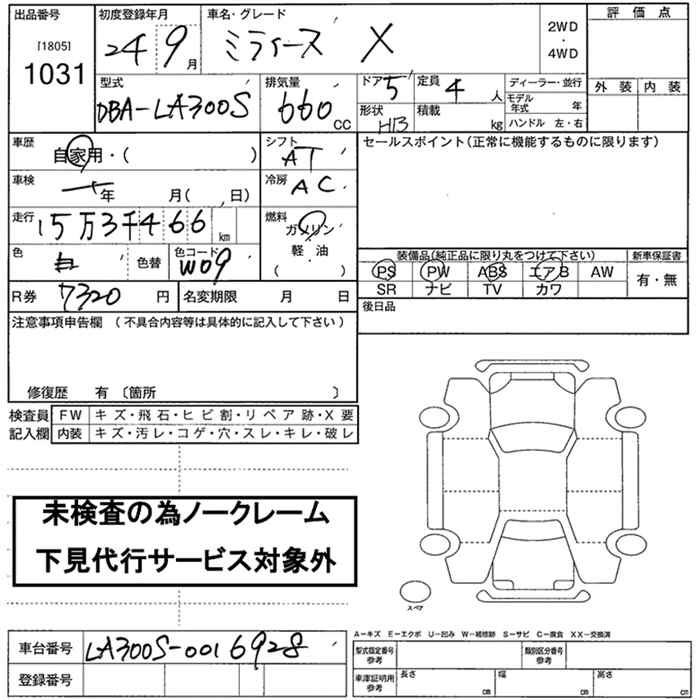 出品番号 初度登録年月 車名・グレード 評価点
[1805] 24 9月 ミライース X 2WD・4WD
1031
型式 排気量 ドア 5 定員 4 人 ディーラー・並行 外装 内装
DBA-LA300S 660 CC 形状 HB 積載 kg モデル年式 年
ハンドル 左・右
車歴 自家用・( ) シフト AT セールスポイント(正常に機能するものに限ります)
車検 一年 月( , 日) 冷房 AC
走行 15万3千466 km 燃料 ガソリン
軽・油
( )
色 白 色替 色コード W09 装備品(純正品に限り丸をつけて下さい) 新車保証書
PS PW ABS エアB AW 有・無
SR ナビ TV カワ
R券 7320 円 名変期限 月 日 後日品
注意事項申告欄 (不具合内容等は具体的に記入して下さい)
修復歴 有 〔箇所 〕
検査員 FW キズ・飛石・ヒビ割・リペア跡・X要
記入欄 内装 キズ・汚レ・コゲ・穴・スレ・キレ・破レ
未検査の為ノークレーム
下見代行サービス対象外
スペア
A－キズ E－エクボ U－凹み W－補修跡 S－サビ C－腐食 XX－交換済
車台番号 LA300S-0016928 型式指定番号 参考 類別区分番号 参考
登録番号 車庫証明用 参考 長さ cm 幅 cm 高さ cm